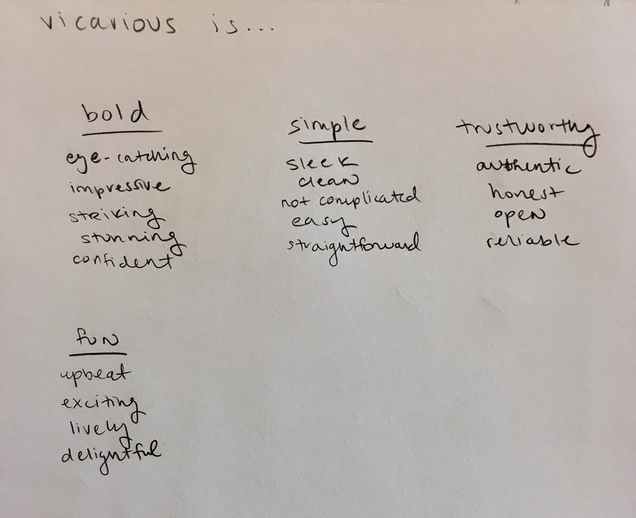 vicarious is...
bold
eye-catching
impressive
striking
stunning
confident
simple
sleek
clean
not complicated
easy
straightforward
trustworthy
authentic
honest
open
reliable
fun
upbeat
exciting
lively
delightful